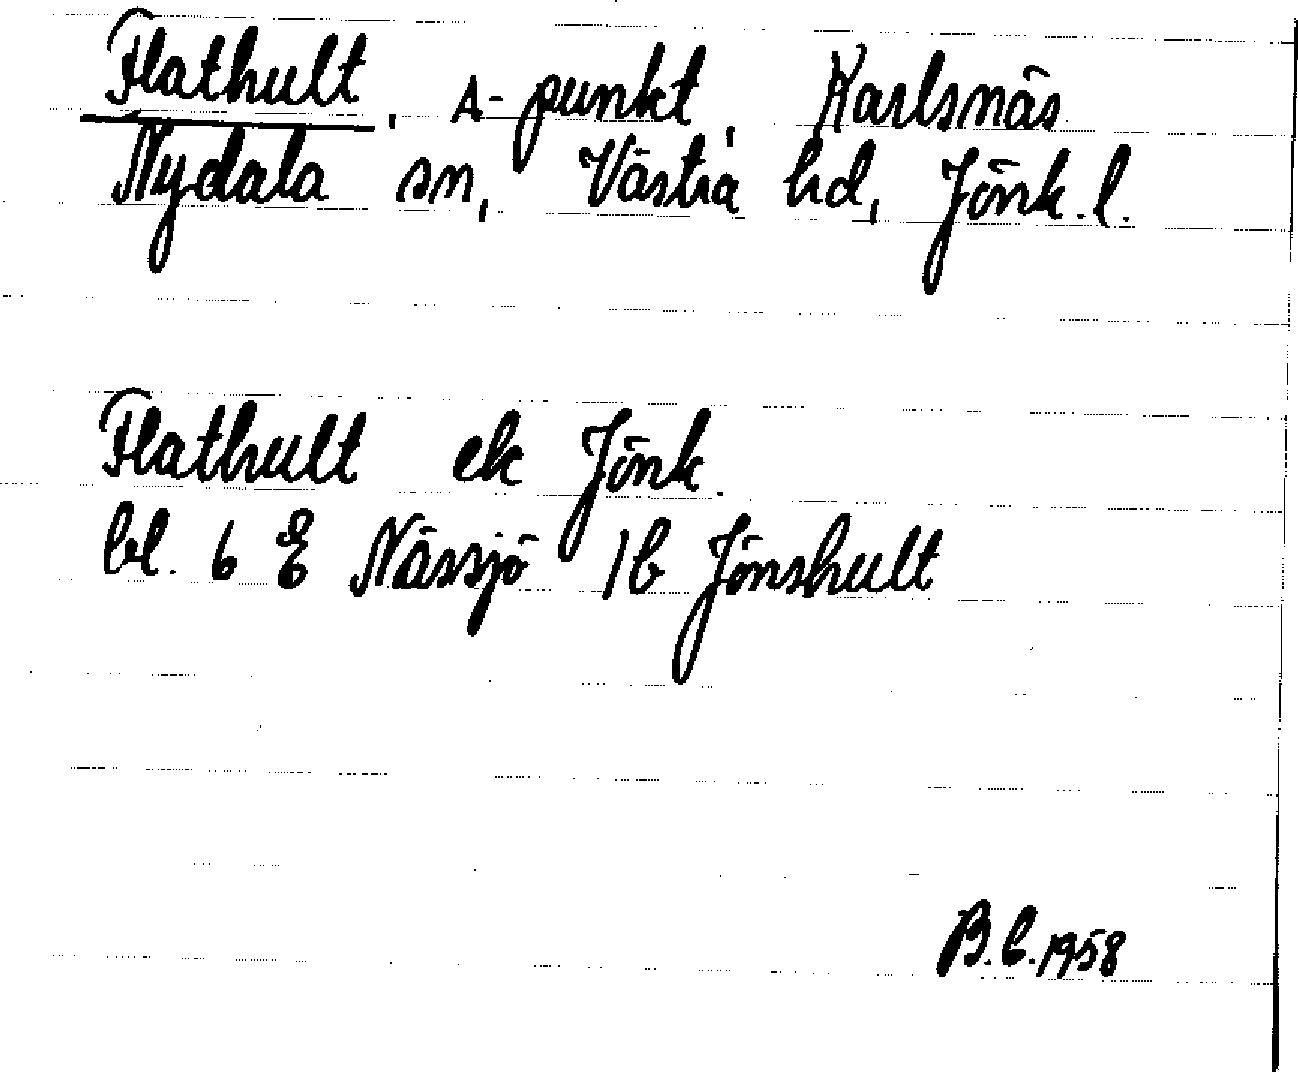 Flathult, A-punkt, Karlsnäs
Nydala sn, Västra hd, Jönk. l.
Flathult ek Jönk.
bl. 6 E Nässjö 1b Jönshult
B.b. 1958